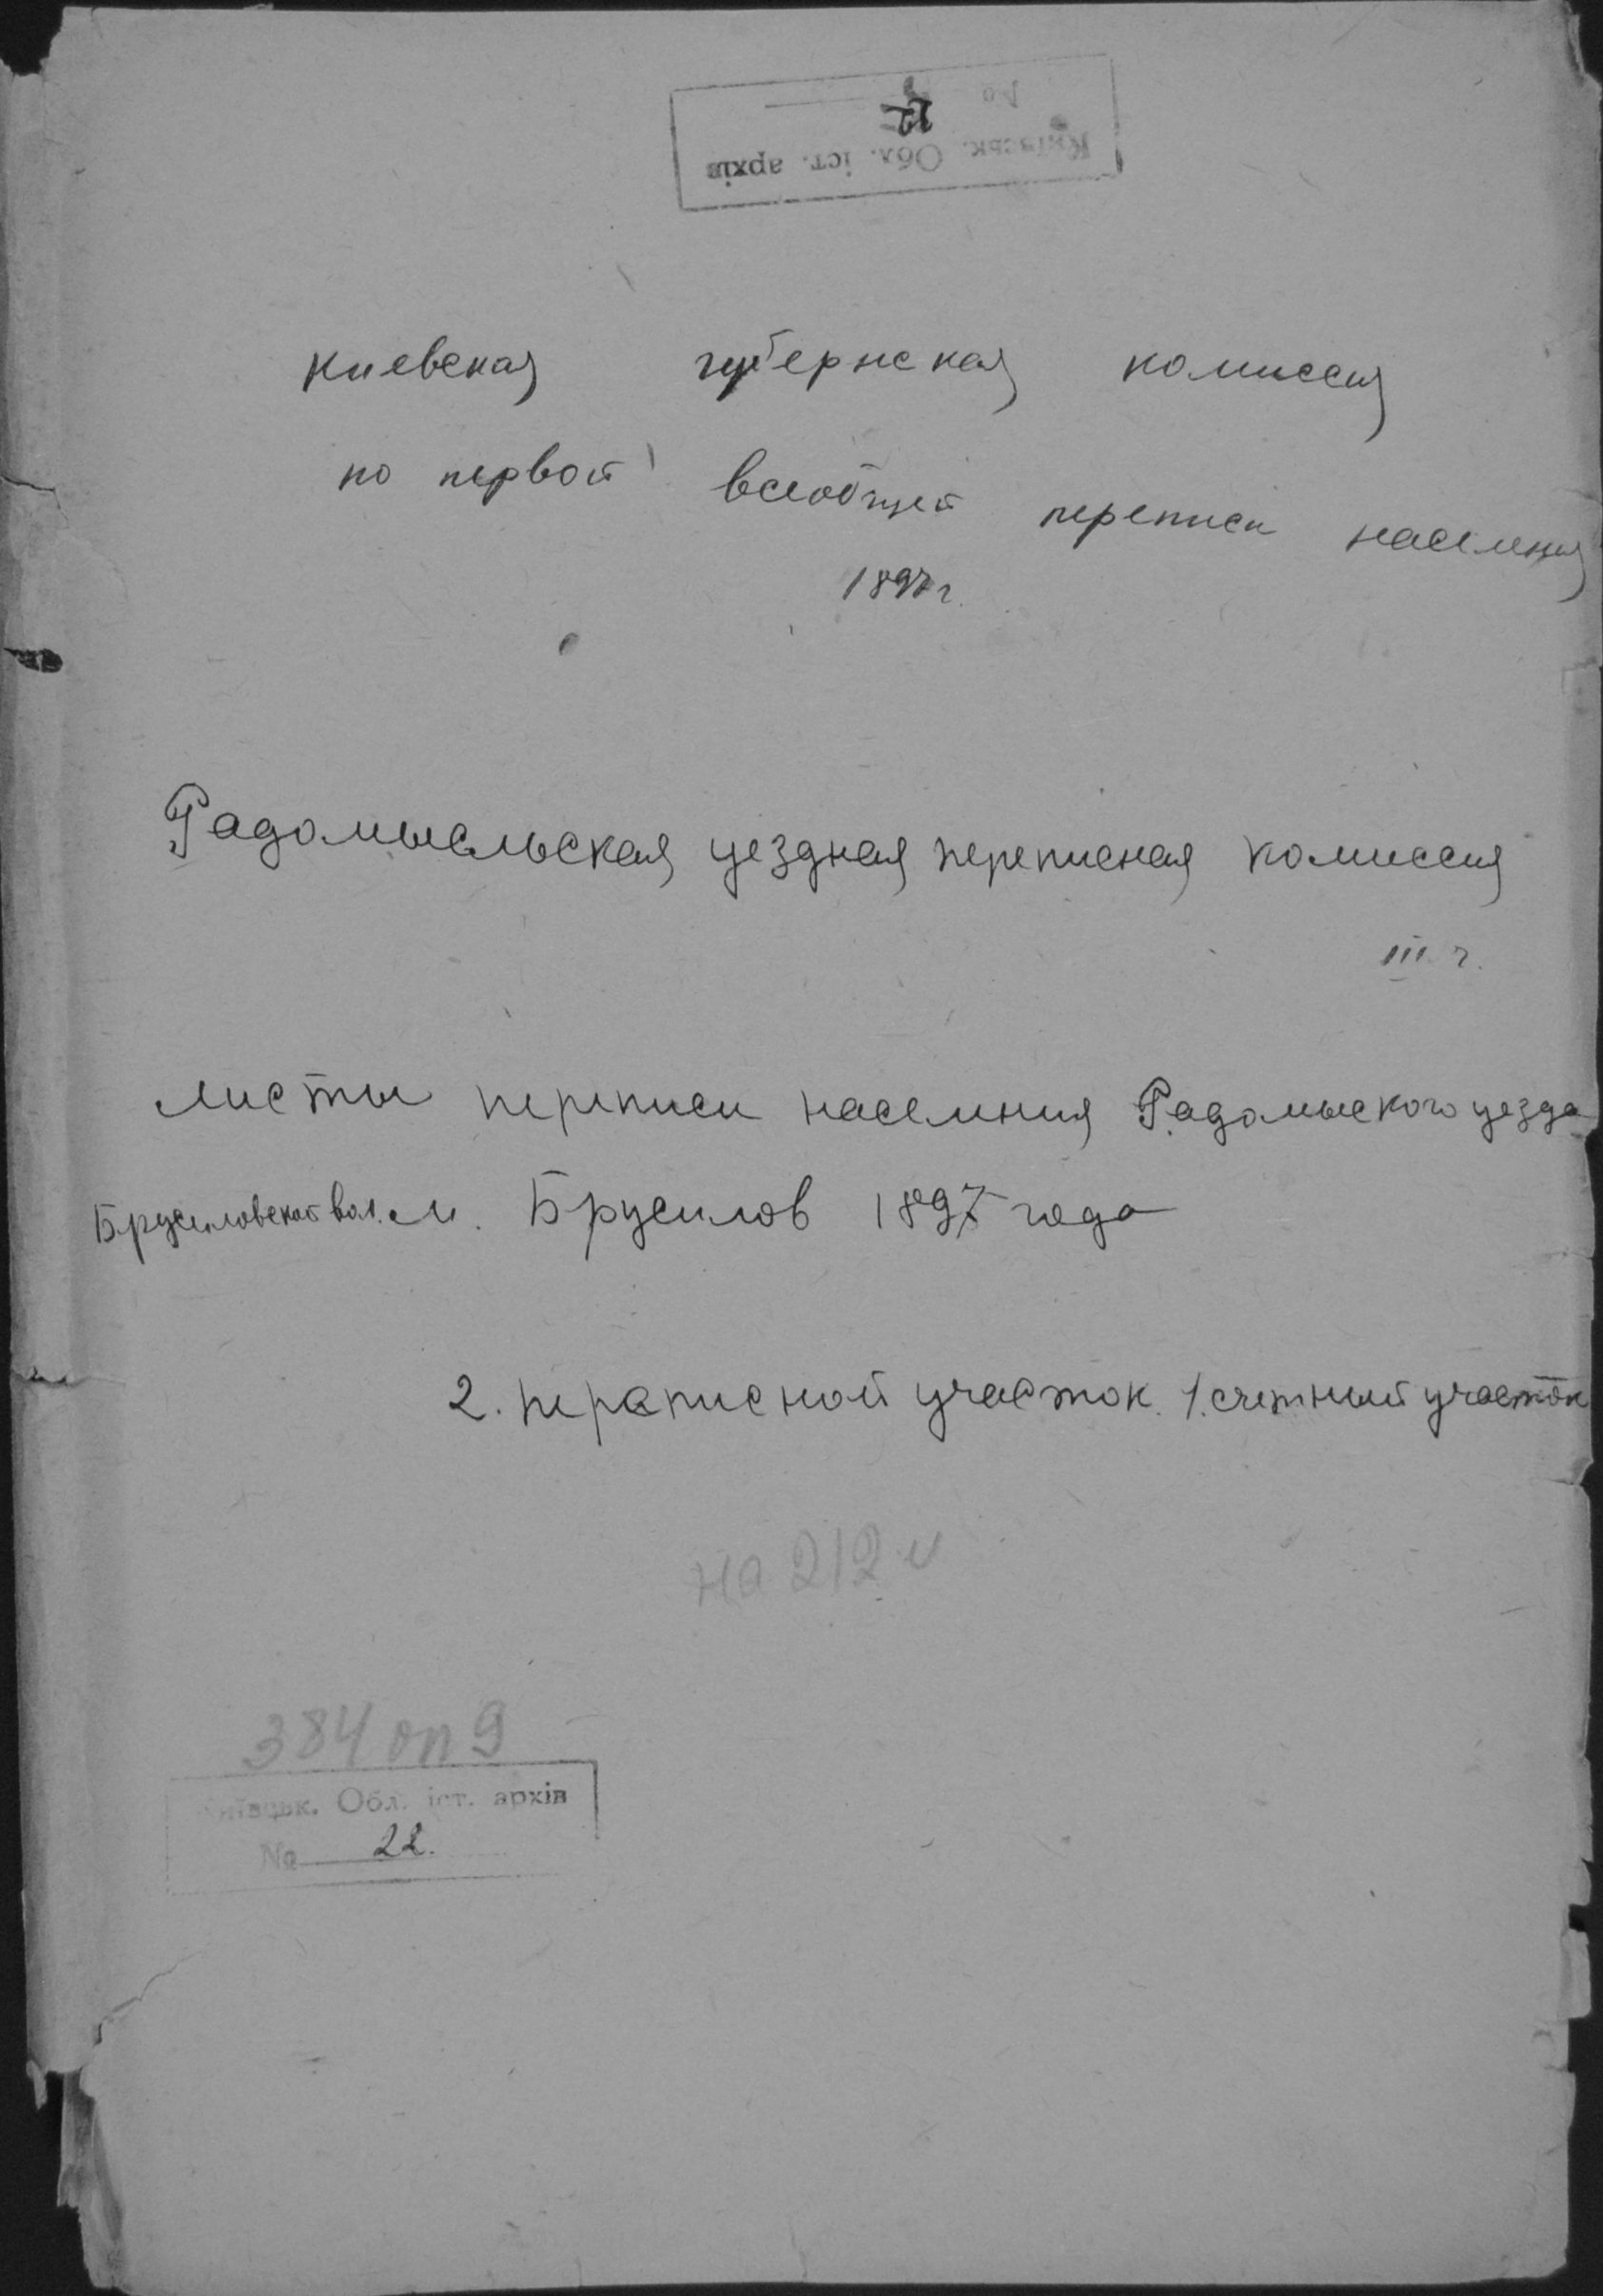 Київськ. Обл. іст. архів
22
Киевская губернская комиссия
по первой всеобщей переписи населения
1897 г.
Радомысльская уездная переписная комиссия
III ч.
Листы переписи населения Радомыского уезда
Брусиловской вол. м. Брусилов 1897 года
2. переписной участок 1. счетный участок
на 212 л
384 оп 9
Київськ. Обл. іст. архів
№ 22.